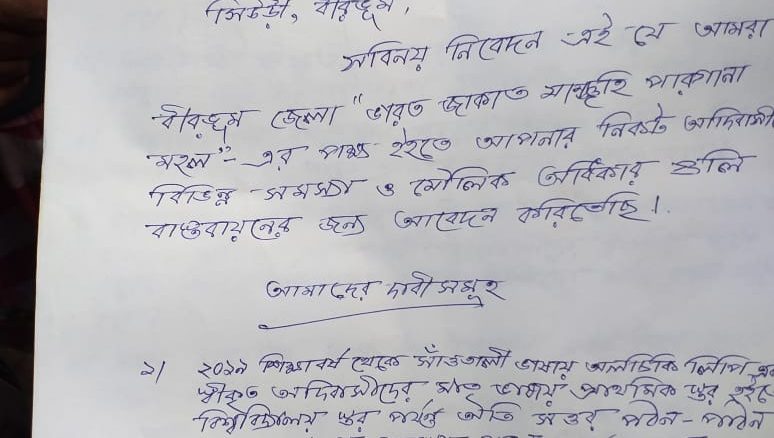 সিউড়ী, বীরভূম,
সবিনয় নিবেদন এই যে আমরা
বীরভূম জেলা "ভারত জাকাত মাঝি পারগানা
মহল"- এর পক্ষ হইতে আপনার নিকট আদিবাসী
বিভিন্ন সমস্যা ও মৌলিক অধিকার গুলি
বাস্তবায়নের জন্য আবেদন করিতেছি।
আমাদের দাবী সমূহ
১। ২০১৯ শিক্ষাবর্ষ থেকে সাঁওতালী ভাষায় অলচিকি লিপি
স্বীকৃত আদিবাসীদের মাতৃ ভাষায় প্রাথমিক স্তর হইতে
বিশ্ববিদ্যালয় স্তর পর্যন্ত অতি সত্তর পঠন-পাঠন